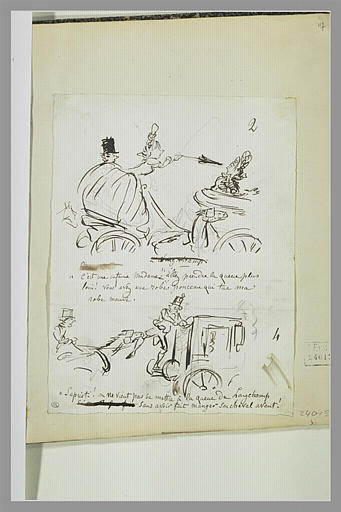 117
2
Longchamp.
" C'est une infamie Madame ! allez prendre la queue plus
loin ! vous avez une robe ponceau qui tue ma
robe mauve.
4
" Sapristi ! on ne vient pas se mettre à la queue de Longchamp
sans avoir fait manger son cheval avant !
24015